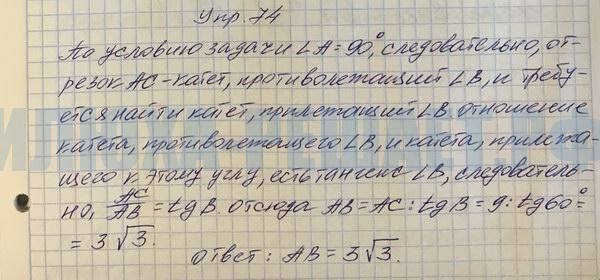 Упр. 74
По условию задачи ∠A = 90°, следовательно, от-
резок AC - катет, противолежащий ∠B, и требу-
ется найти катет, прилежащий ∠B. отношение
катета, противолежащего ∠B, и катета, прилежа-
щего к этому углу, есть тангенс ∠B, следователь-
но, AC/AB = tg B. Отсюда AB = AC : tg B = 9 : tg 60° =
= 3√3.
Ответ: AB = 3√3.